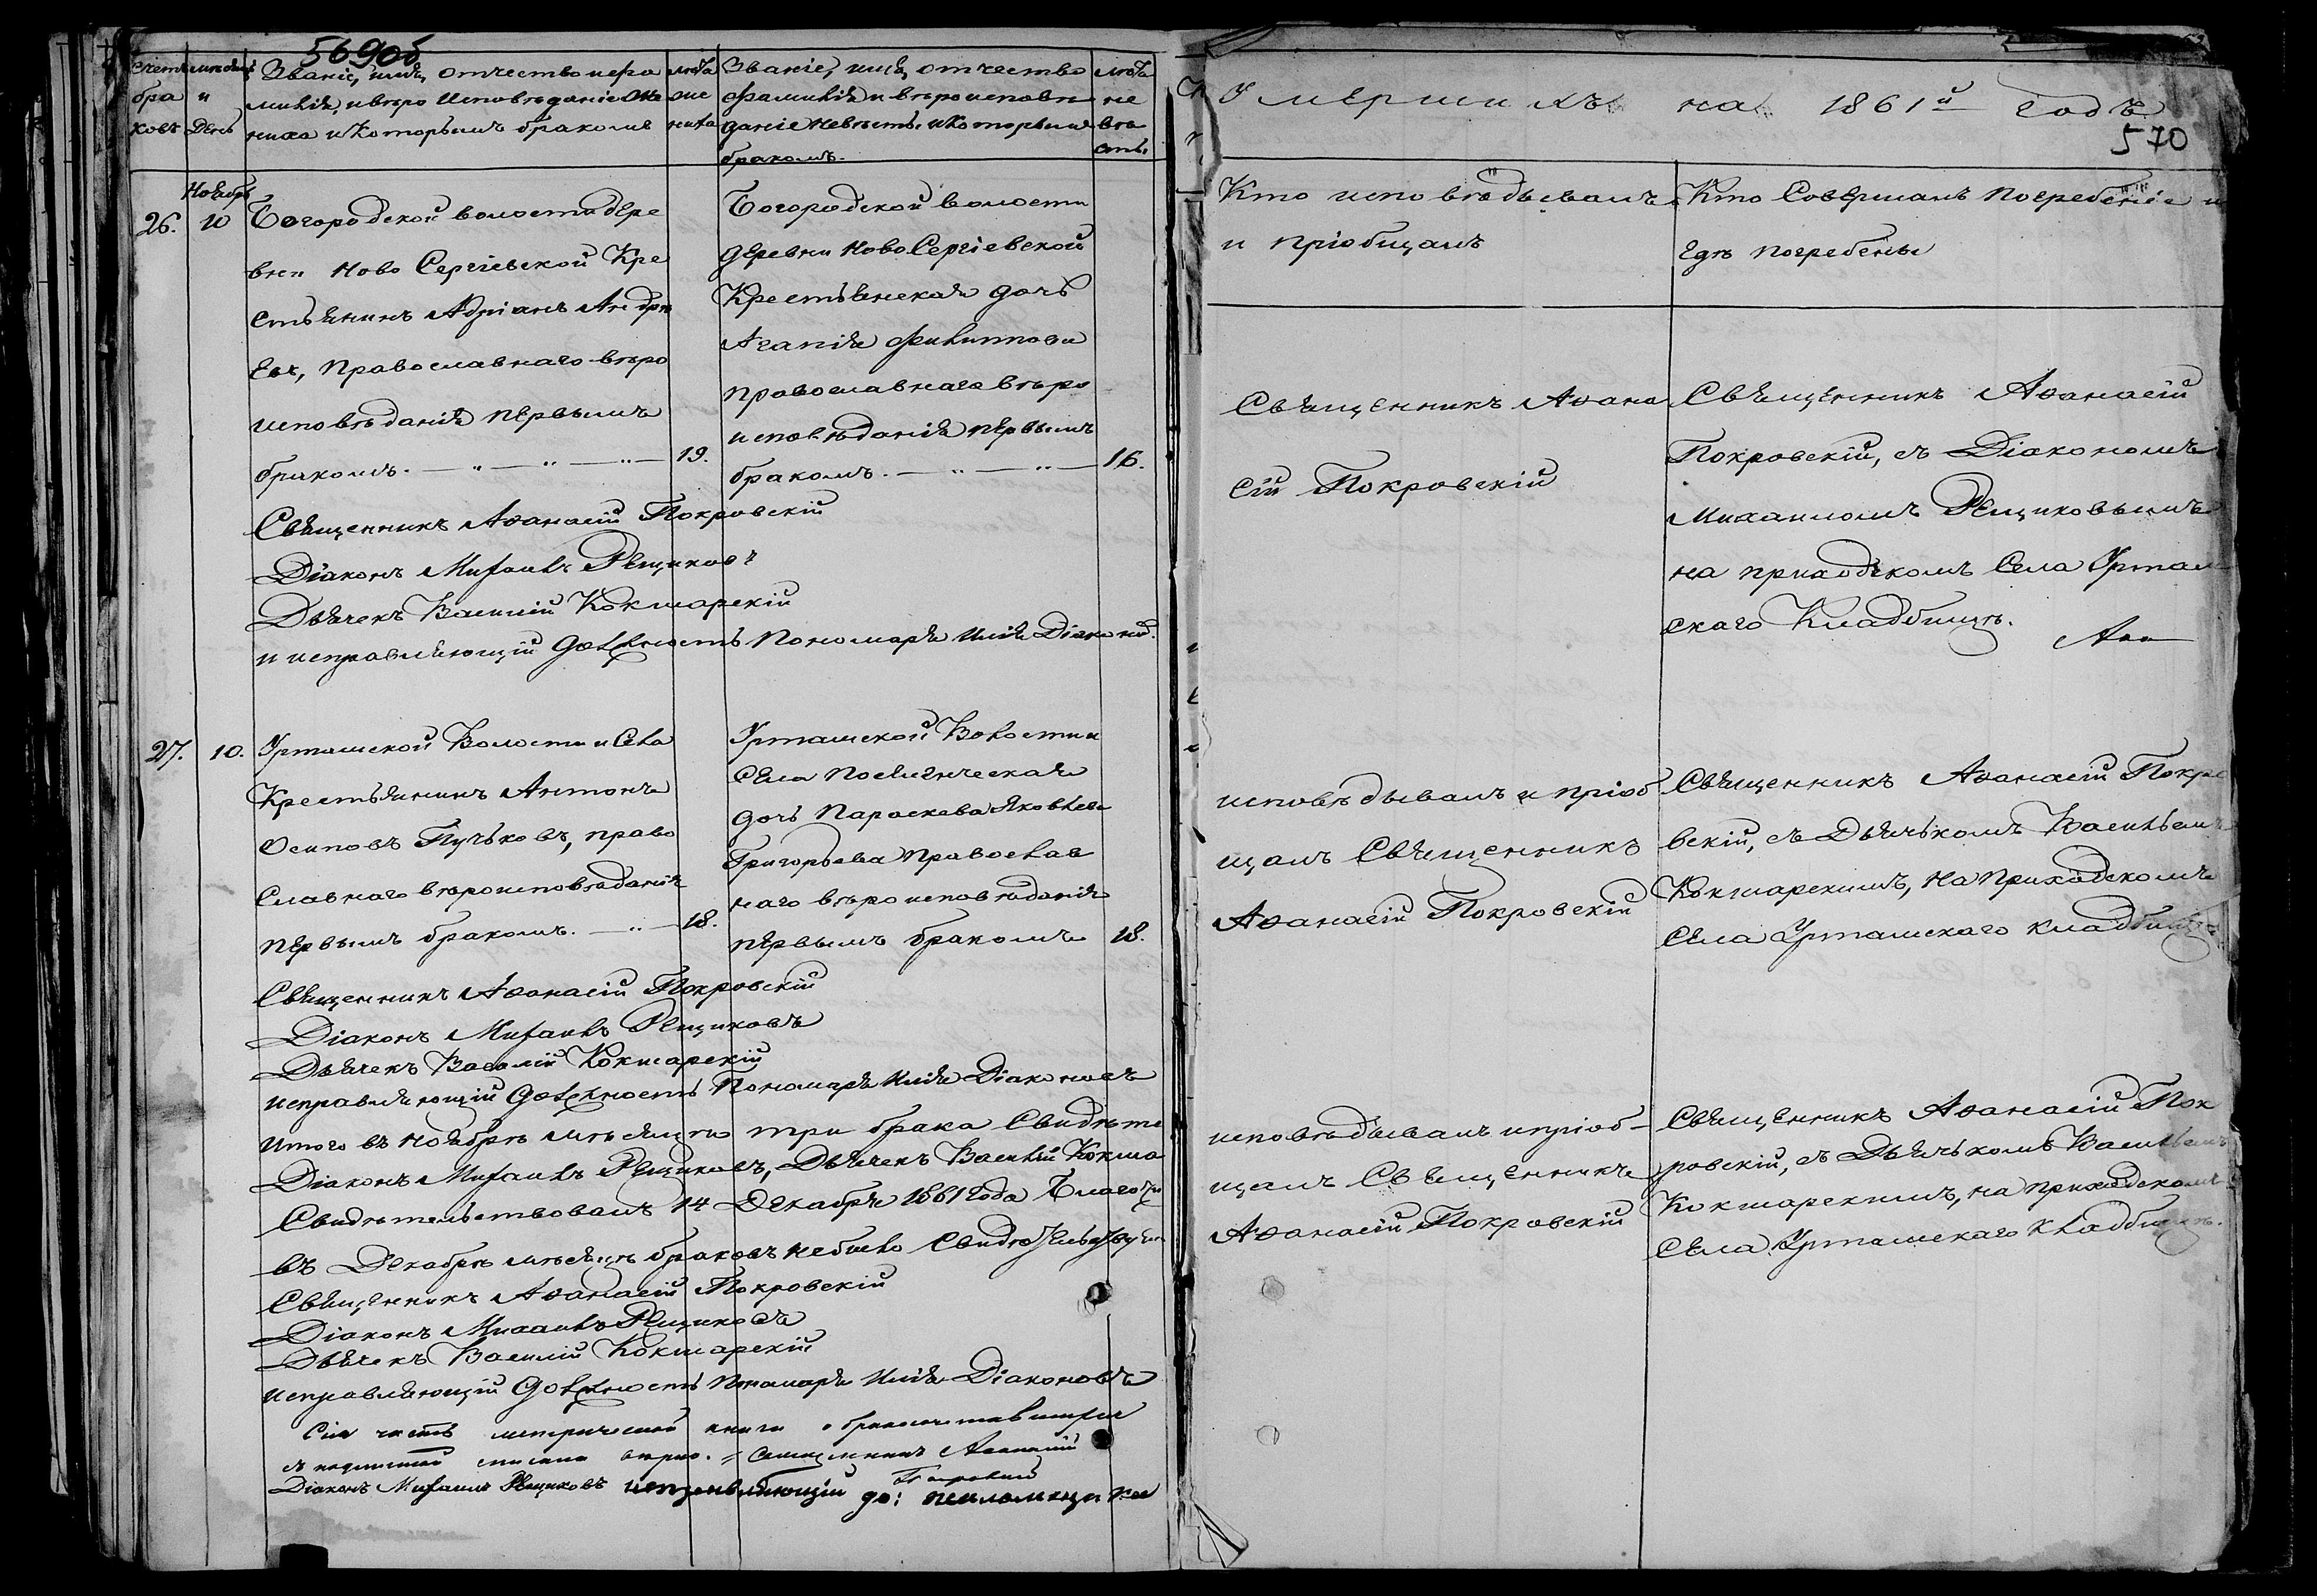 569об
Счетъ бра ковъ
Мѣсяцъ и День
Званіе, имя, отчество и фа
милія, и вѣро Исповѣданіе Же
ниха и Которымъ бракомъ
лѣта же ниха
Званіе, имя, отчество
фамилія и вѣроисповѣ
даніе невѣсты, и Которымъ
бракомъ.
лѣта не вѣ сты
Ноябрь
26. 10
Богородской волости дере
вни Ново Сергіевской Кре
стьянинъ Адріанъ Андре
евъ, Православнаго вѣро
исповѣданія первымъ
бракомъ. 19.
Богородской волости
деревни Ново Сергіевской
Крестьянская дочь
Агапія Филиппова
православнаго вѣро
исповѣданія первымъ
бракомъ. 16.
Священникъ Аѳанасій Покровскій
Діаконъ Михаилъ Рещиковъ
Дьячекъ Василій Кокшарскій
и исправляющій должность Пономаря Илія Діаконов.
27. 10.
Уртамской Волости и Села
Крестьянинъ Антонъ
Осиповъ Пучьковъ, право
славнаго вѣроисповѣданія
первымъ бракомъ. 18.
Уртамской Волости и
Села Поселенческая
дочь Параскева Яковлева
Григорьева Православ
наго вѣроисповѣданія
первымъ бракомъ 18.
Священникъ Аѳанасій Покровскій
Діаконъ Михаилъ Рещиковъ
Дьячекъ Василій Кокшарскій
исправляющій должность Пономаря Илія Діаконовъ
Итого въ Ноябрѣ мѣсяцѣ три брака Свидѣте
Діаконъ Михаилъ Рещиковъ, Дьячекъ Василій Кокша
Свидѣтельствовалъ 14 Декабря 1861 года Благочи
въ Декабрѣ мѣсяцѣ браковъ не было
Священникъ Аѳанасій Покровскій
Діаконъ Михаилъ Рещиковъ
Дьячекъ Василій Кокшарскій
исправляющій должность Пономаря Илія Діаконовъ
Сія часть метрической книги о бракосочетавшихся
съ подлинной списана вѣрно. Священникъ Аѳанасій
Покровскій
Діаконъ Михаилъ Рещиковъ исправляющій до:
Умершихъ на 1861й годъ
570
Кто исповѣдывалъ
и пріобщалъ
Кто Совершалъ Погребеніе и
гдѣ погребены
Священникъ Аѳана
сій Покровскій
Священникъ Аѳанасій
Покровскій, съ Діакономъ
Михаиломъ Рещиковымъ
на приходскомъ Села Уртам
скаго Кладбищѣ.
исповѣдывалъ и пріоб
щалъ Священникъ
Аѳанасій Покровскій
Священникъ Аѳанасій Покро
вскій, съ Дьячькомъ Васильемъ
Кокшарскимъ, на Приходскомъ
Села Уртамскаго кладбищѣ
исповѣдывалъ и пріоб-
щалъ Священникъ
Аѳанасій Покровскій
Священникъ Аѳанасій Пок
ровскій, съ Дьячькомъ Васильемъ
Кокшарскимъ, на приходскомъ
Села Уртамскаго кладбищѣ.